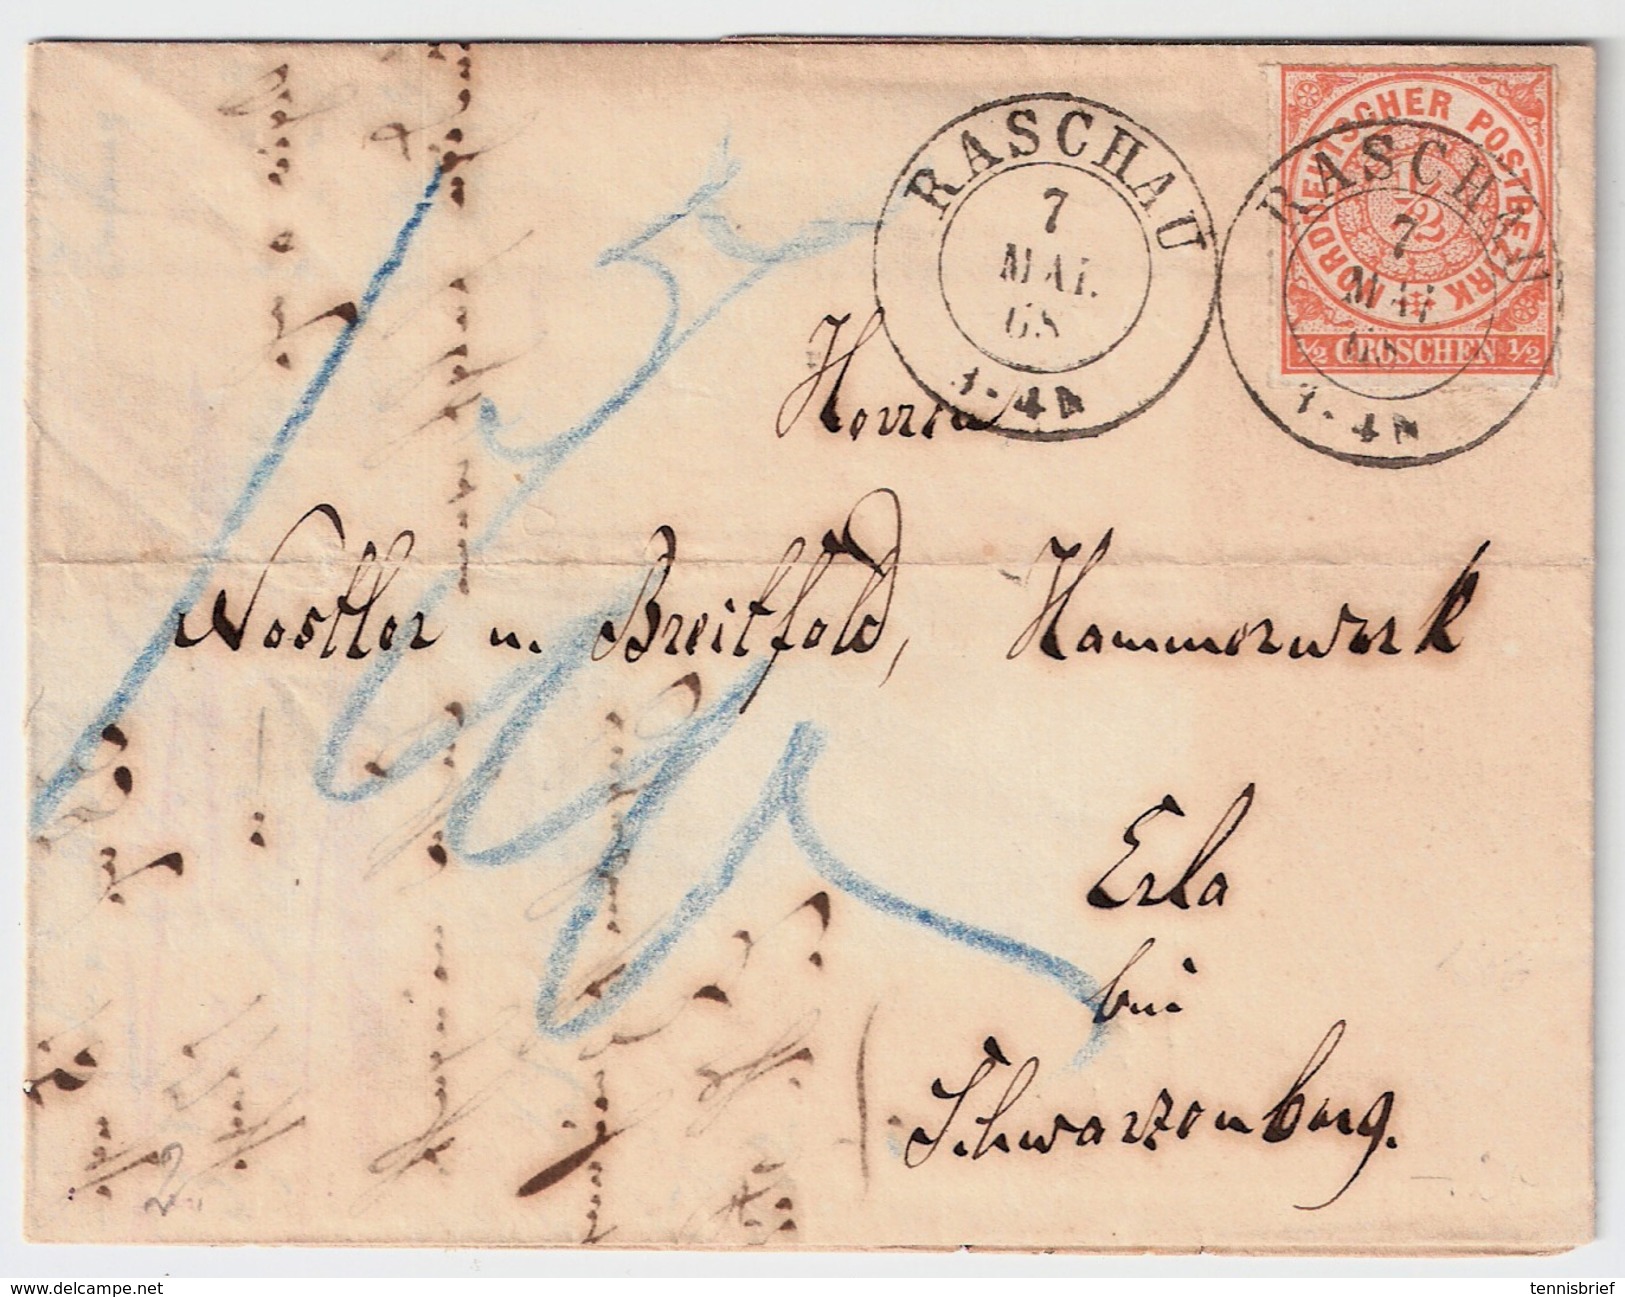 RASCHAU
7
MAI.
68
3-4N
NORDDEUTSCHER POSTBEZIRK
1/2
½ GROSCHEN ½
RASCHAU
7
MAI
68
3-4N
Herren
Nestler u. Breitfeld, Hammerwerk
Erla
bei
Schwarzenberg.
2
delcampe.net
tennisbrief